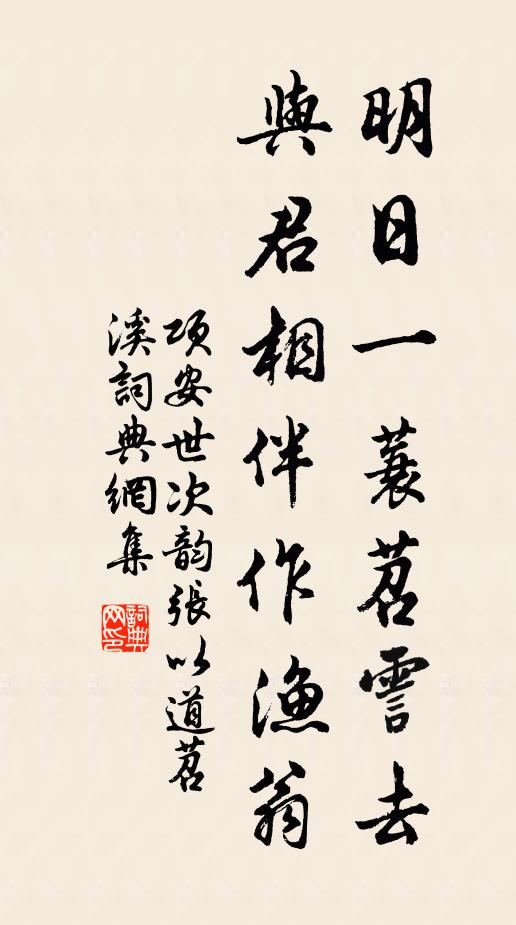 明日一蓑苕霅去
與君相伴作漁翁
項安世次韵張以道苕
溪詞典網集
詞典網印